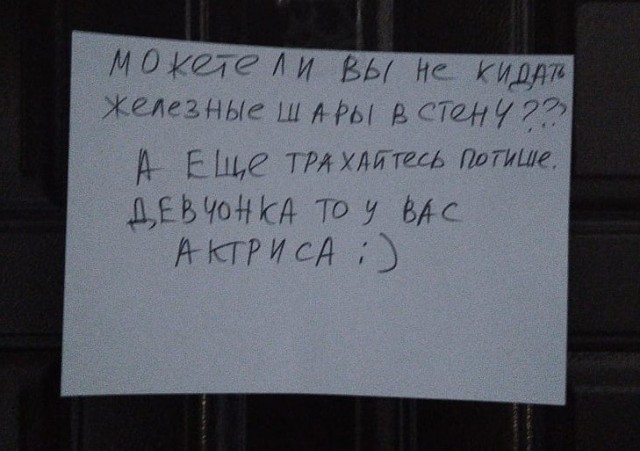 МОЖЕТЕ ЛИ ВЫ НЕ КИДАТЬ
ЖЕЛЕЗНЫЕ ШАРЫ В СТЕНУ???
А ЕЩЕ ТРАХАЙТЕСЬ ПОТИШЕ.
ДЕВЧОНКА ТО У ВАС
АКТРИСА ;)